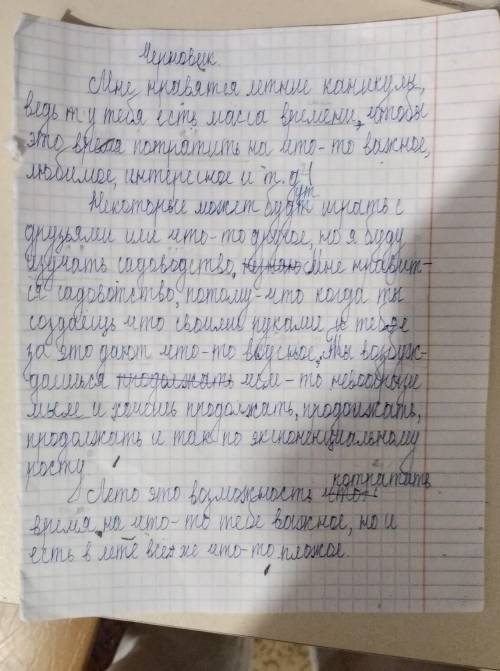 Черновик.
Мне нравятся летние каникулы,
ведь у тебя есть масса времени, чтобы
это время потратить на что-то важное,
любимое, интересное и т.д!
Некоторые может будут играть с
друзьями или что-то другое, но я буду
изучать садоводство, Мне нравит-
ся садовотство, потому-что когда ты
создаёшь что своими руками и тебе
за это дают что-то вкусное, ты
чем-то
и хочешь продолжать, продолжать,
продолжать и так по экспоненциальному
росту
Лето это возможность потратить
время на что-то тебе важное, но и
есть в лете всё же что-то плохое.